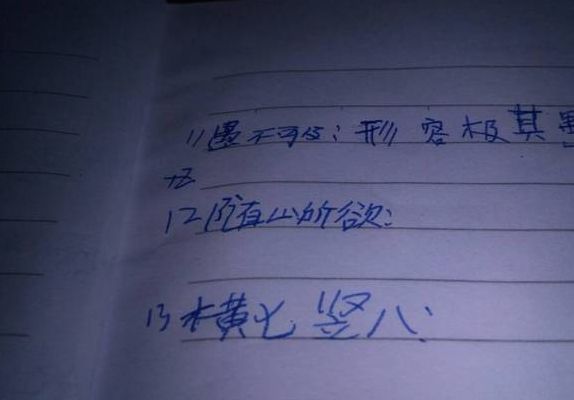 11愚不可及:形容极其
12随心所欲:
13横七竖八: